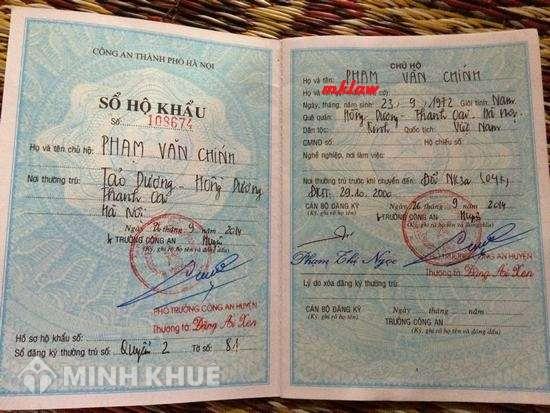 CÔNG AN THÀNH PHỐ HÀ NỘI
SỔ HỘ KHẨU
Số: 108674
Họ và tên chủ hộ: PHẠM VĂN CHÍNH
Nơi thường trú: Tảo Dương - Hồng Dương
Thanh Oai
Hà Nội
Ngày 26 tháng 9 năm 2014
TRƯỞNG CÔNG AN Huyện
(Ký, ghi rõ họ tên và đóng dấu)
PHÓ TRƯỞNG CÔNG AN HUYỆN
Thượng tá: Đặng
Hồ sơ hộ khẩu số:
Sổ đăng ký thường trú số: Quyển 2 Tờ số: 81
MINH KHUE
CHỦ HỘ
Họ và tên: PHẠM VĂN CHÍNH
mklaw
Họ và tên
Ngày, tháng, năm sinh: 23 - 9 - 1972 Giới tính: Nam
Quê quán: Hồng Dương - Thanh Oai - Hà Nội
Dân tộc: Kinh Quốc tịch: Việt Nam
CMND số: Hộ chiếu số:
Nghề nghiệp, nơi làm việc:
Nơi thường trú trước khi chuyển đến:
ĐKTT: 29.10.2000
Ngày 26 tháng 9 năm 2014
CÁN BỘ ĐĂNG KÝ
(Ký, ghi rõ họ tên)
TRƯỞNG CÔNG AN Huyện
(Ký, ghi rõ họ tên và đóng dấu)
Phạm Thị Ngọc
TRƯỞNG CÔNG AN HUYỆN
Thượng tá: Đặng
Lý do xóa đăng ký thường trú:
Ngày tháng năm
CÁN BỘ ĐĂNG KÝ
(Ký, ghi rõ họ tên)
TRƯỞNG CÔNG AN
(Ký, ghi rõ họ tên và đóng dấu)